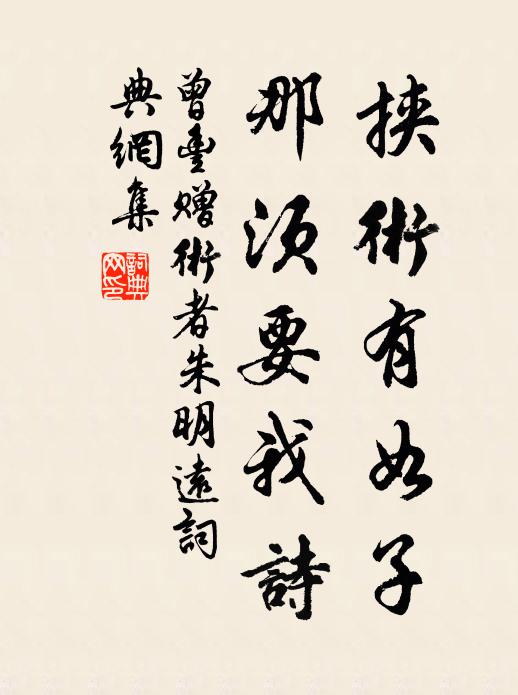 挾術有如子
那須要我詩
曾豐贈術者朱明遠詞
典網集
詞典網印